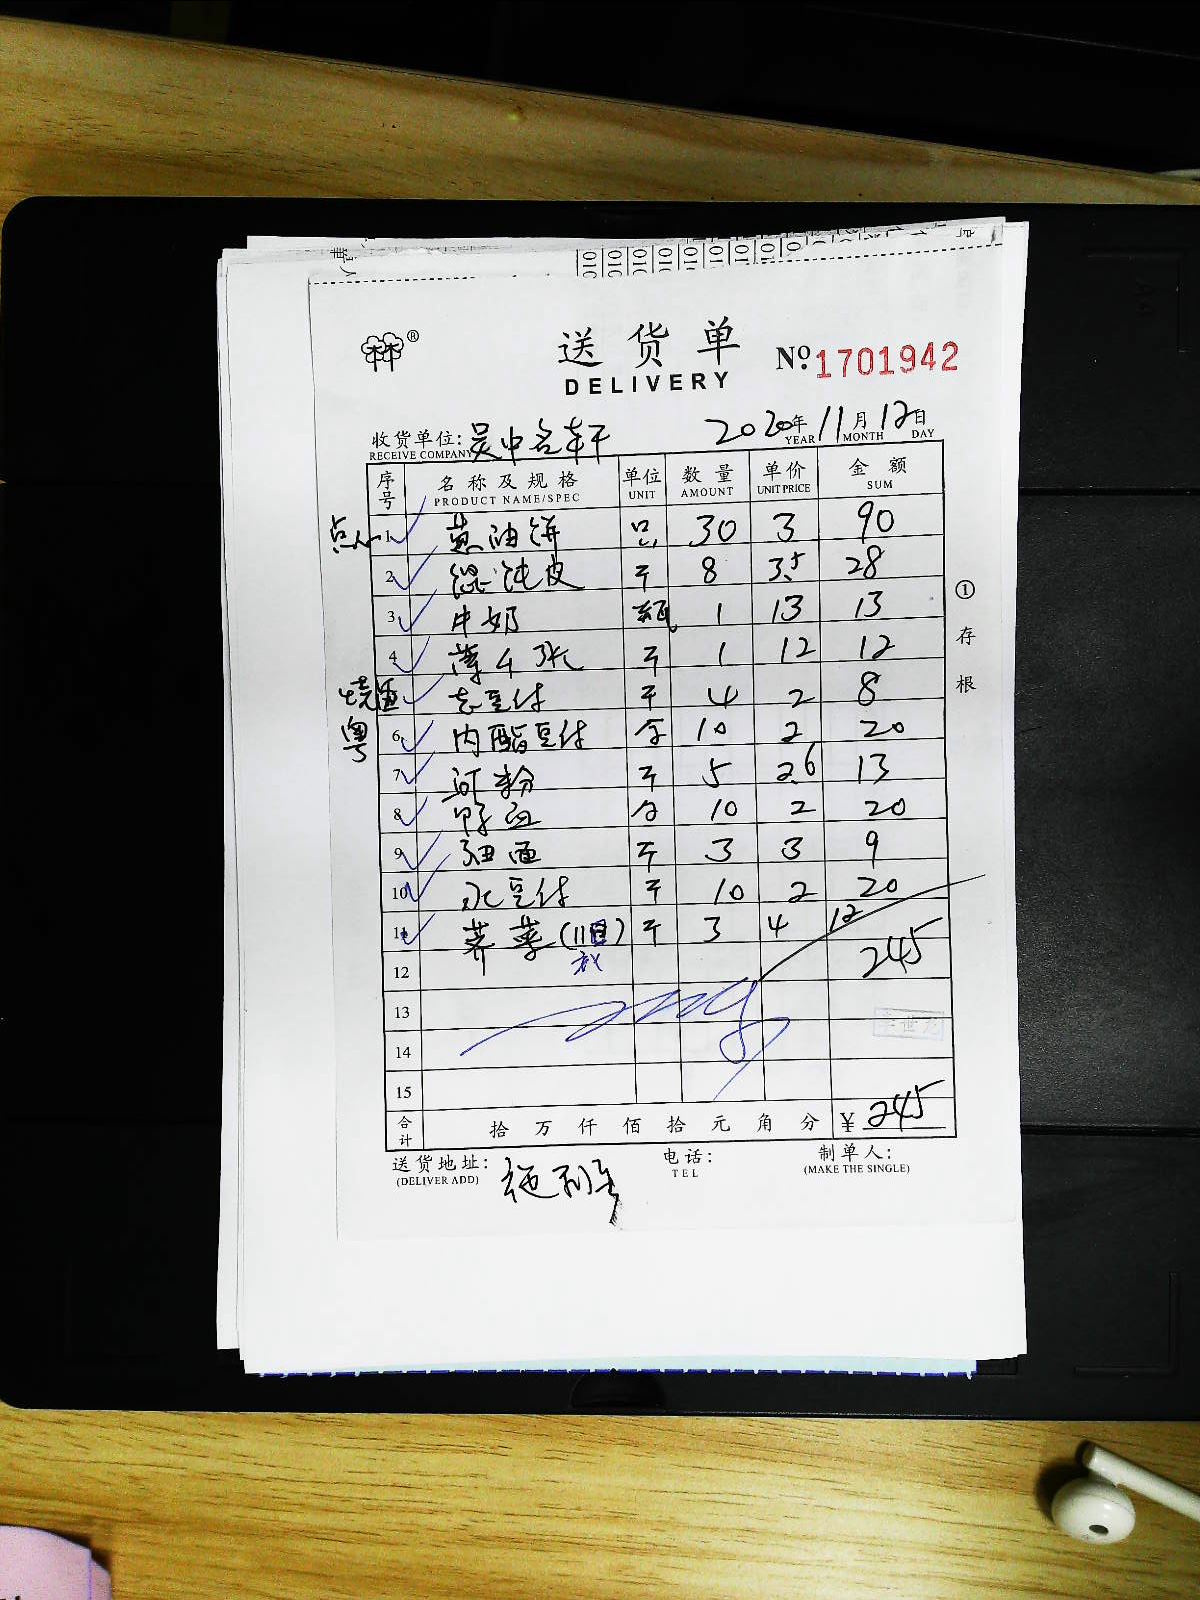 送货单
DELIVERY
№ 1701942
收货单位: 吴中名轩 2020年11月12日
RECEIVE COMPANY YEAR MONTH DAY
序号 名称及规格 单位 数量 单价 金额
PRODUCT NAME/SPEC UNIT AMOUNT UNIT PRICE SUM
点心 1 葱油饼 只 30 3 90
2 馄饨皮 斤 8 3.5 28
3 牛奶 瓶 1 13 13
4 薄千张 斤 1 12 12
老豆付 斤 4 2 8
粤 6 内酯豆付 伞 10 2 20
7 河粉 斤 5 2.6 13
8 鸭血 10 2 20
9 细面 斤 3 3 9
10 水豆付 斤 10 2 20
11 荠菜(11日) 斤 3 4 12
12 245
13
14
15
合计 拾 万 仟 佰 拾 元 角 分 ¥ 245
送货地址: 电话: 制单人:
(DELIVER ADD) TEL (MAKE THE SINGLE)
①存根